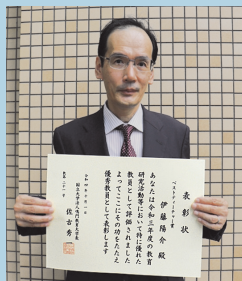 表彰状
ベストティーチャー賞
伊藤陽介 殿
あなたは令和三年度の教育
研究活動等において特に優れた
教員として評価されました
よってここにその功をたたえ
優秀教員として表彰します
国立大学法人鳴門教育大学長
佐古秀一